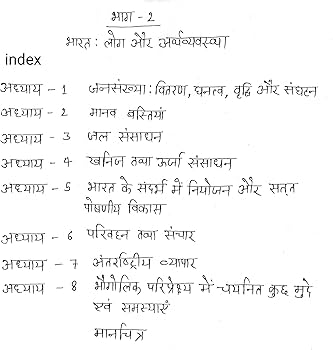 भाग - 2
भारत : लोग और अर्थव्यवस्था
index
अध्याय - 1 जनसंख्या : वितरण, घनत्व, वृद्धि और संघटन
अध्याय - 2 मानव बस्तियां
अध्याय - 3 जल संसाधन
अध्याय - 4 खनिज तथा ऊर्जा संसाधन
अध्याय - 5 भारत के संदर्भ में नियोजन और सतत्
पोषणीय विकास
अध्याय - 6 परिवहन तथा संचार
अध्याय - 7 अंतर्राष्ट्रीय व्यापार
अध्याय - 8 भौगोलिक परिप्रेक्ष्य में चयनित कुछ मुद्दे
एवं समस्याएं
मानचित्र